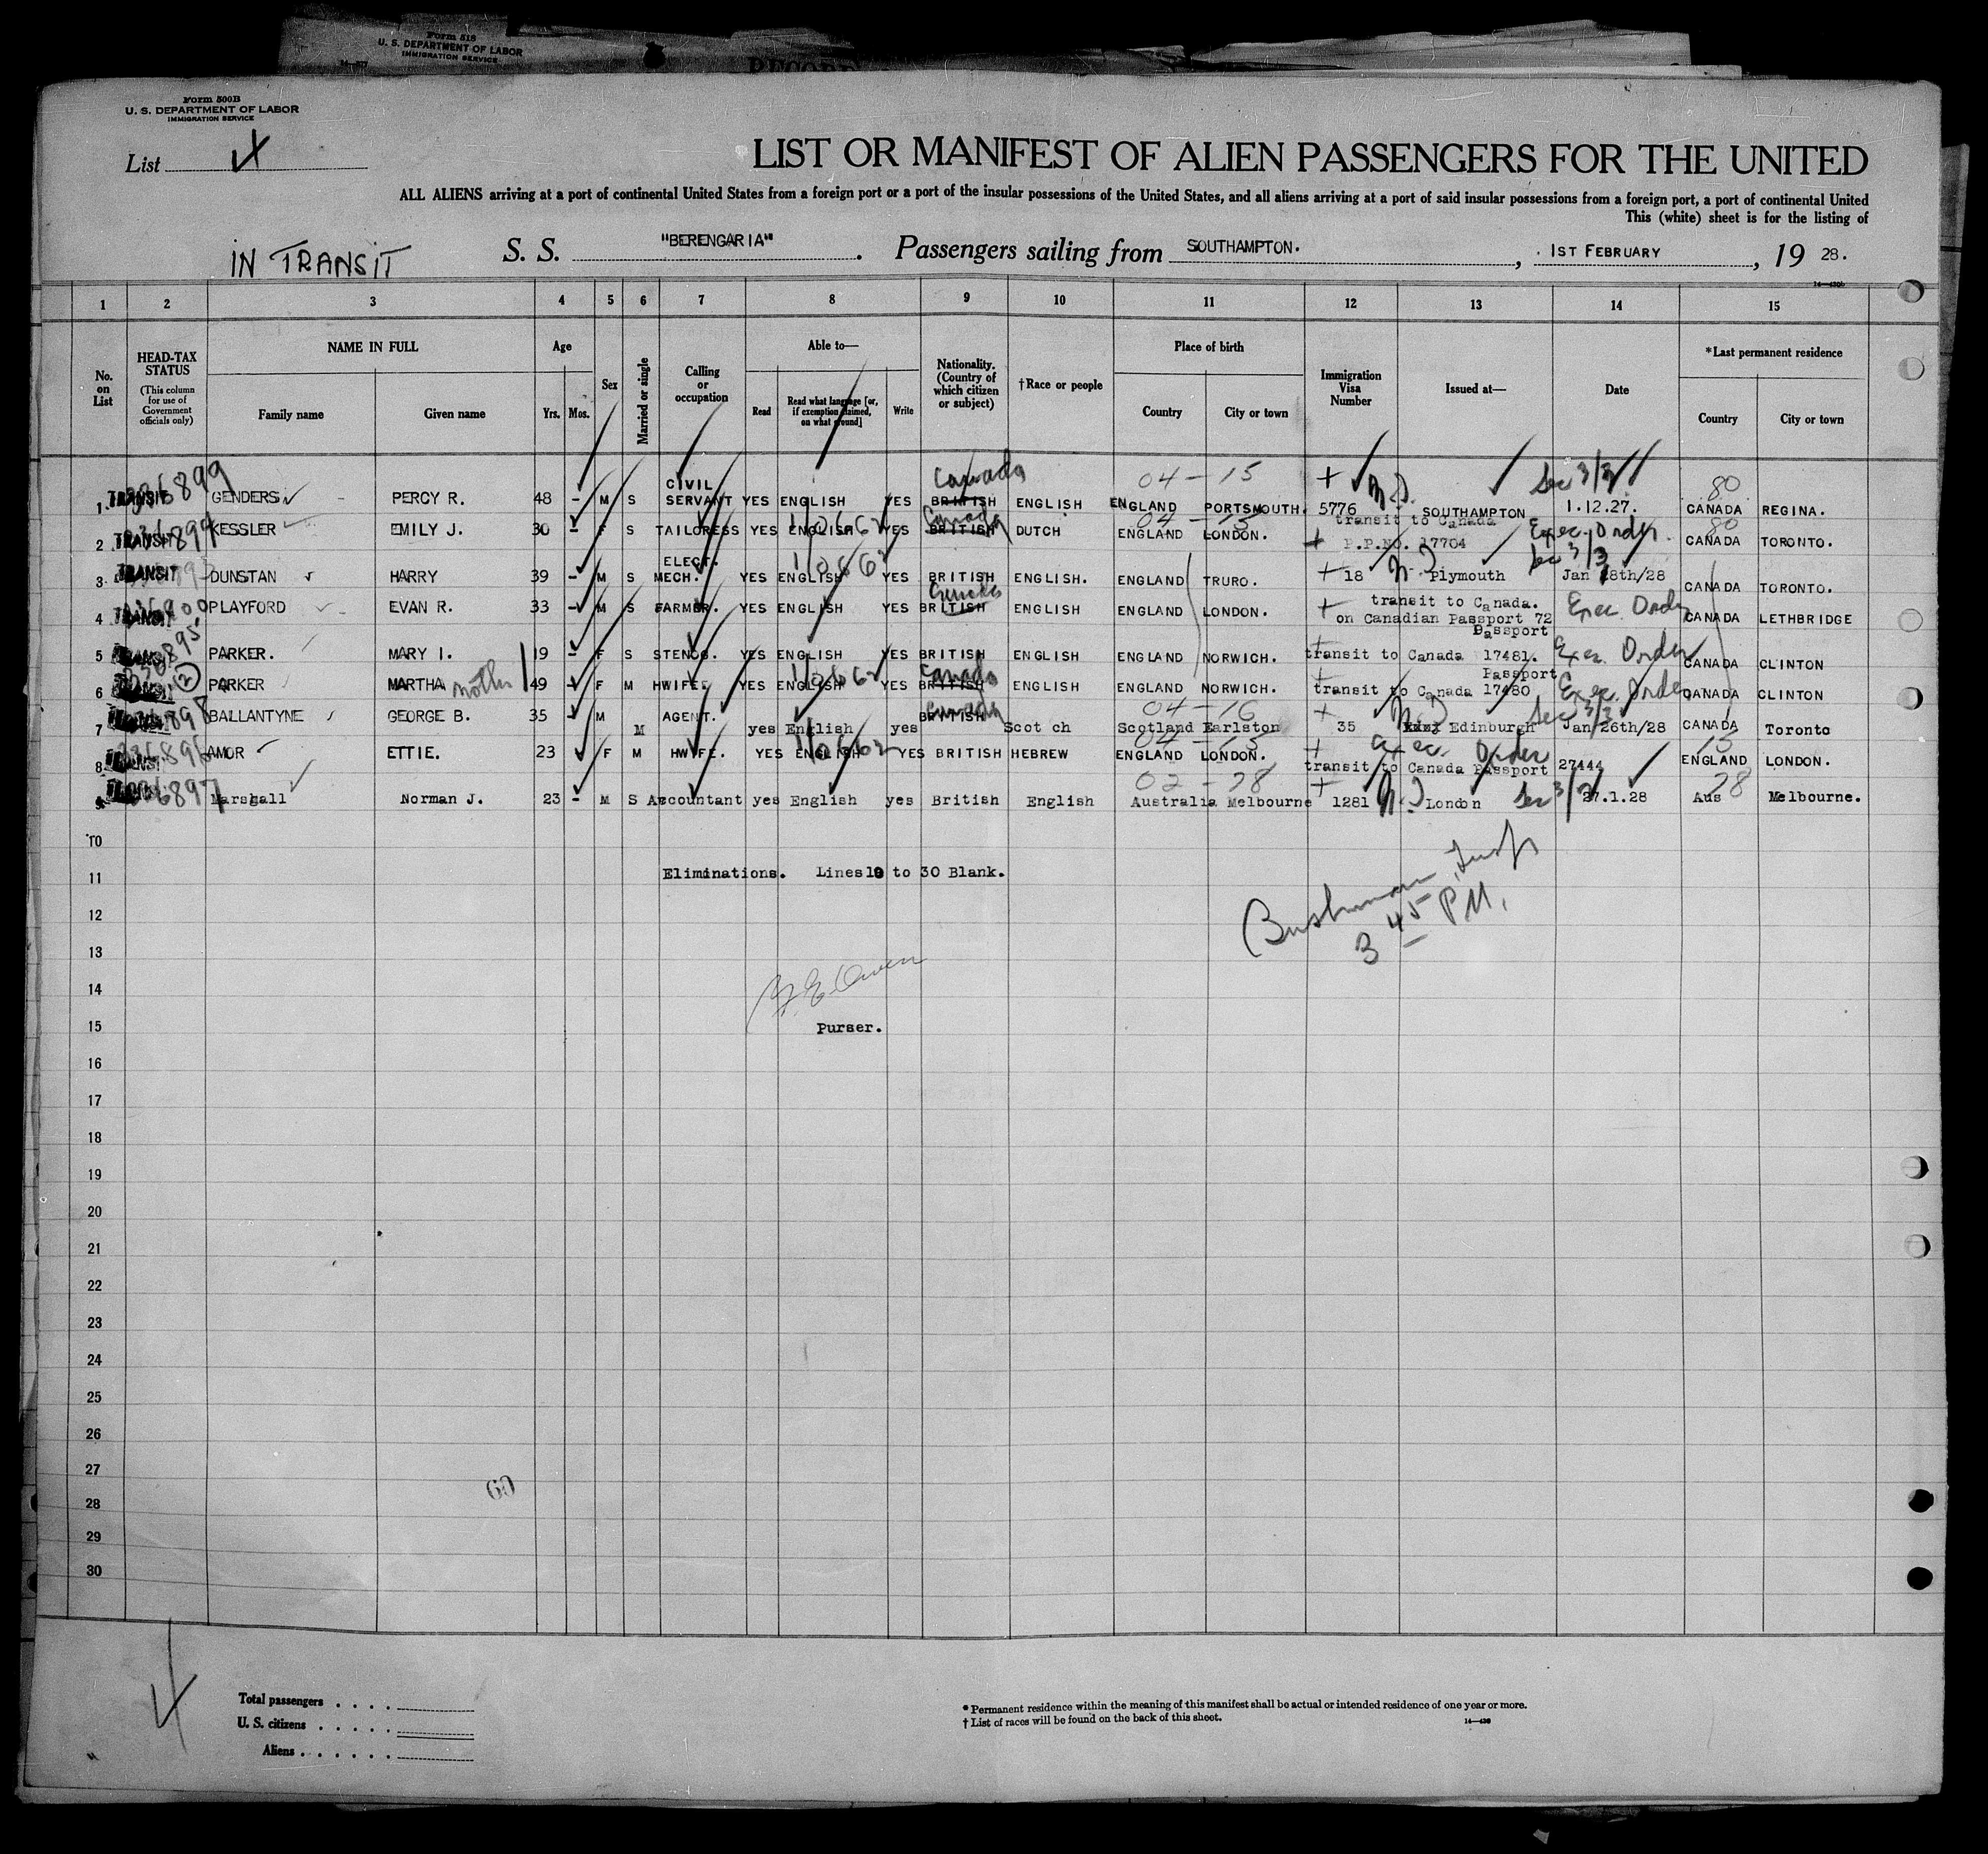 Form 518
U. S. DEPARTMENT OF LABOR
IMMIGRATION SERVICE
Form 500B
U. S. DEPARTMENT OF LABOR
IMMIGRATION SERVICE
List
LIST OR MANIFEST OF ALIEN PASSENGERS FOR THE UNITED
ALL ALIENS arriving at a port of continental United States from a foreign port or a port of the insular possessions of the United States, and all aliens arriving at a port of said insular possessions from a foreign port, a port of continental United
This (white) sheet is for the listing of
IN TRANSIT S. S. "BERENGARIA" . Passengers sailing from SOUTHAMPTON. , 1ST FEBRUARY , 19 28.
1 2 3 4 5 6 7 8 9 10 11 12 13 14 15
No. on List
HEAD-TAX STATUS (This column for use of Government officials only)
NAME IN FULL Family name Given name
Age Yrs. Mos.
Sex
Married or single
Calling or occupation
Able to— Read Read what language [or, if exemption claimed, on what ground] Write
Nationality. (Country of which citizen or subject)
†Race or people
Place of birth Country City or town
Immigration Visa Number
Issued at—
Date
*Last permanent residence Country City or town
Canada 04-15 Sec 3/3 80
1 TRANSIT 236899 GENDERS PERCY R. 48 - M S CIVIL SERVANT YES ENGLISH YES BRITISH ENGLISH ENGLAND PORTSMOUTH. 5776 SOUTHAMPTON 1.12.27. CANADA REGINA.
Canada 04-15 transit to Canada Exec. Order 80
2 TRANSIT KESSLER EMILY J. 30 - F S TAILORESS YES ENGLISH YES BRITISH DUTCH ENGLAND LONDON. P.P.No. 17704 CANADA TORONTO.
3 TRANSIT DUNSTAN HARRY 39 - M S ELECT. MECH. YES ENGLISH YES BRITISH ENGLISH. ENGLAND TRURO. 18 Plymouth Jan 28th/28 CANADA TORONTO.
4 PLAYFORD EVAN R. 33 - M S FARMER. YES ENGLISH YES BRITISH ENGLISH ENGLAND LONDON. transit to Canada. on Canadian Passport 72 Exec. Order CANADA LETHBRIDGE
5 PARKER. MARY I. 19 - F S STENOG. YES ENGLISH YES BRITISH ENGLISH ENGLAND NORWICH. transit to Canada Passport 17481. Exec. Order CANADA CLINTON
6 PARKER MARTHA mother 49 - F M HWIFE. YES ENGLISH YES BRITISH Canada ENGLISH ENGLAND NORWICH. transit to Canada Passport 17480 Exec. Order CANADA CLINTON
04-16
7 BALLANTYNE GEORGE B. 35 - M M AGENT. yes English yes BRITISH Scot ch Scotland Earlston 35 Edinburgh Jan/26th/28 CANADA Toronto
04-15 Exec. Order 15
8 AMOR ETTIE. 23 F M HWIFE. YES ENGLISH YES BRITISH HEBREW ENGLAND LONDON. transit to Canada Passport 27444 ENGLAND LONDON.
02-28 28
9 236897 Marshall Norman J. 23 - M S Accountant yes English yes British English Australia Melbourne 1281 London 27.1.28 Aus Melbourne.
10
11 Eliminations. Lines 10 to 30 Blank.
Bushman, Insp
3 45 P.M.
12
13
14
15 Purser.
16
17
18
19
20
21
22
23
24
25
26
27
60
28
29
30
4
Total passengers . . . .
U. S. citizens . . . . .
Aliens . . . . . .
* Permanent residence within the meaning of this manifest shall be actual or intended residence of one year or more.
† List of races will be found on the back of this sheet.
14—430